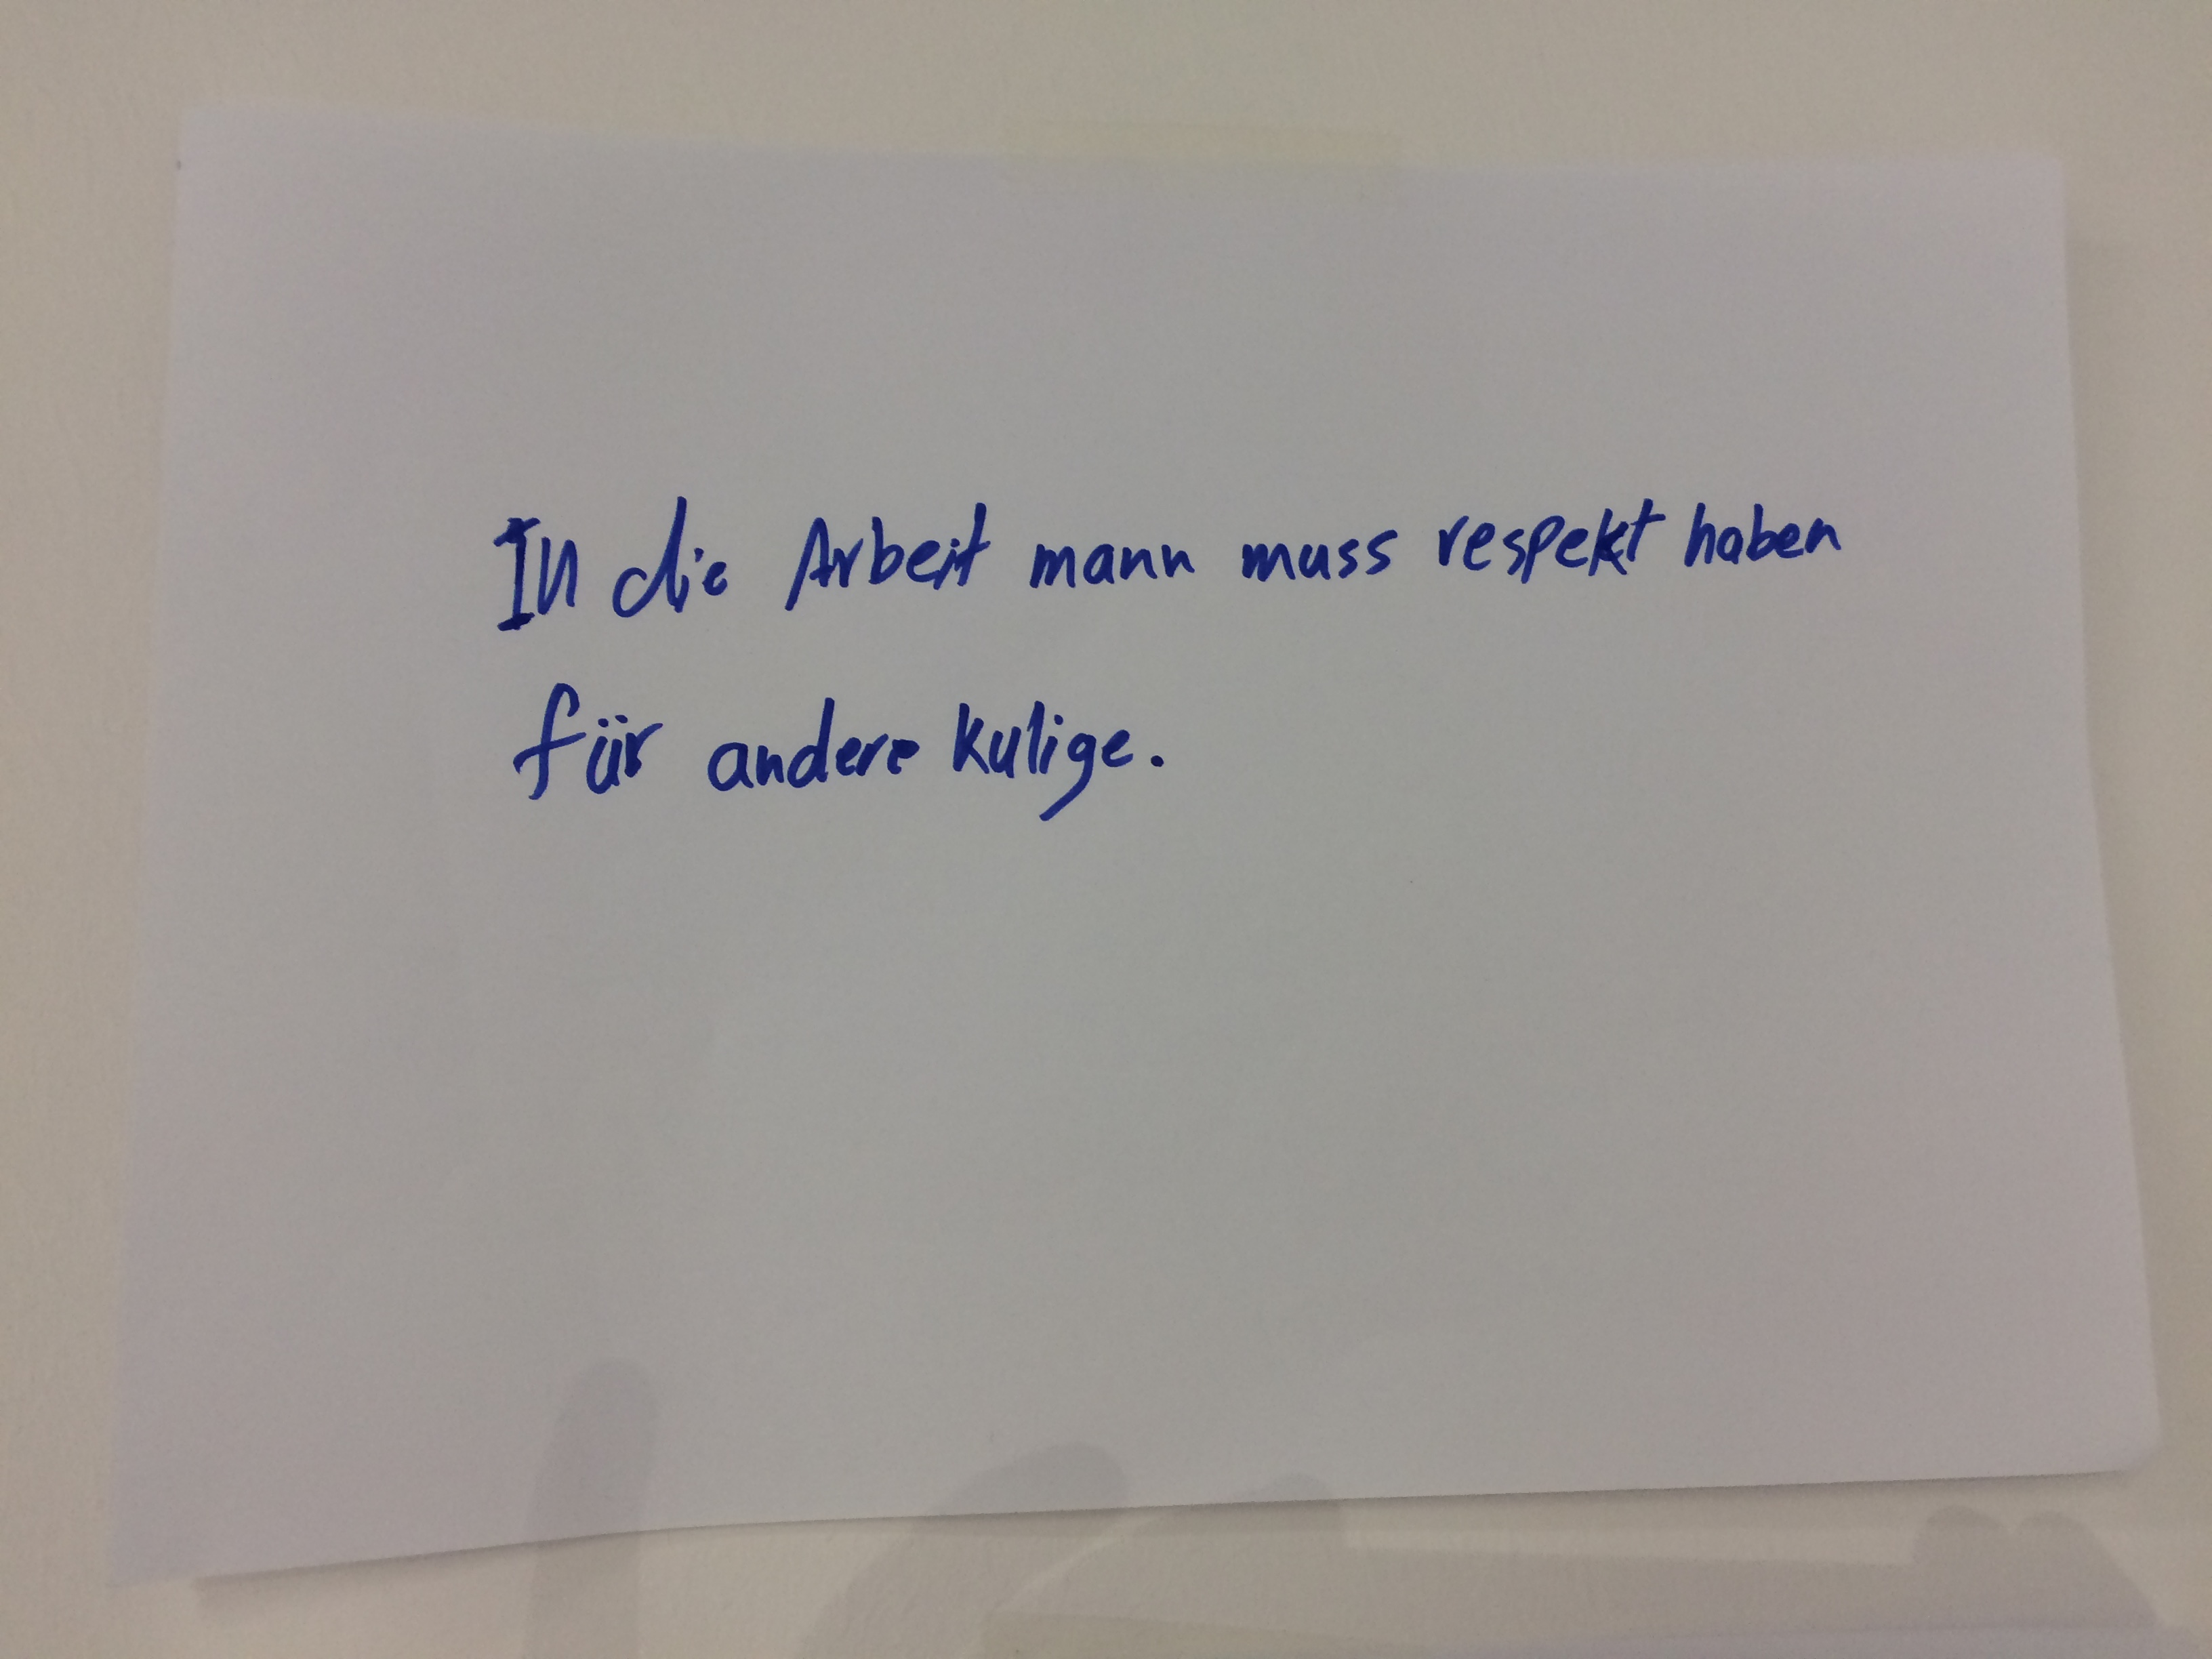 In die Arbeit mann muss respekt haben
für andere kulige.